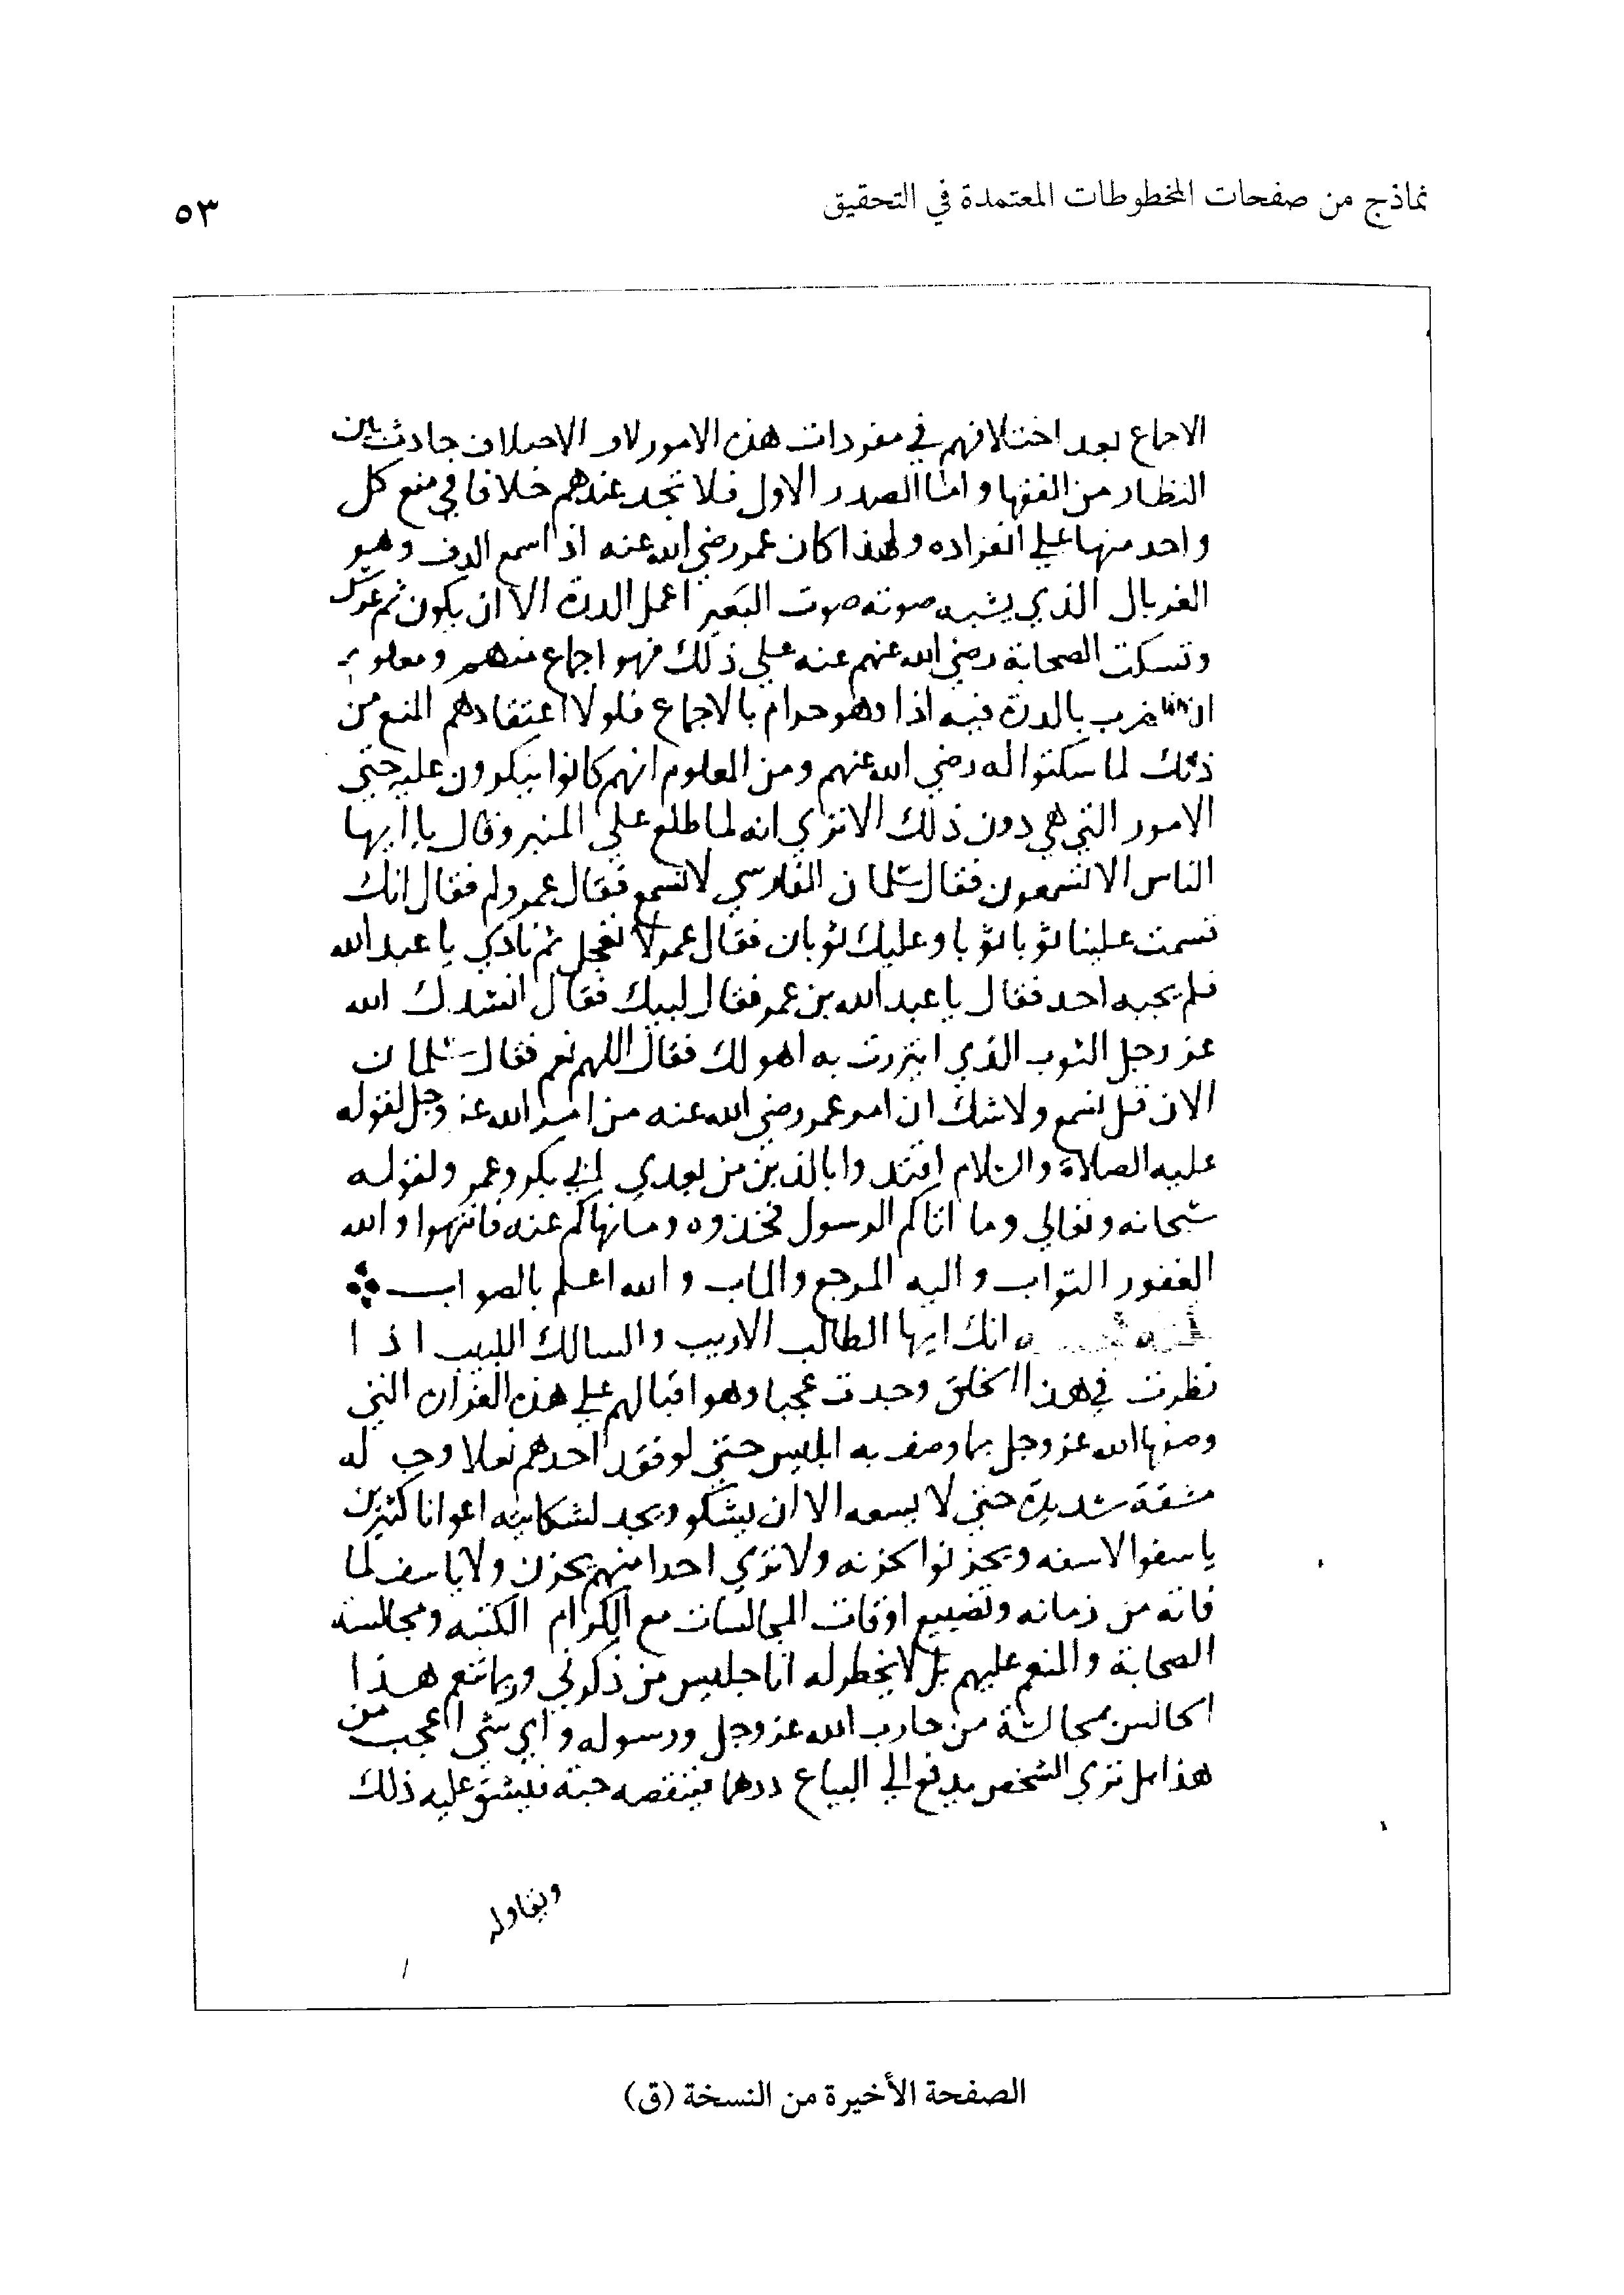 نماذج من صفحات المخطوطات المعتمدة في التحقيق
٥٣
الاجماع بعد اختلافهم في مفردات هذه الامور لان الاختلاف حادث بين
النظار من الفقها واما الصدر الاول فلا تجد عندهم خلافا في منع كل
واحد منها علي انفراده ولهذا كان عمر رضي الله عنه اذا سمع الدف وهو
الغربال الذي يشبه صوته صوت البعير اعمل الدرة الا ان يكون ثم عرس
وتسكت الصحابة رضي الله عنهم عنه علي ذلك فهو اجماع منهم ومعلوم
ان الضرب بالدرة فيه اذا وهو حرام بالاجماع فلولا اعتقادهم المنع من
ذلك لما سكتوا له رضي الله عنهم ومن المعلوم انهم كانوا ينكرون عليه حتي
الامور التي هي دون ذلك الا تري انه لما طلع علي المنبر وقال يا ايها
الناس الا تسمعون فقال سلمان الفارسي لا نسمع فقال عمر ولم فقال انك
قسمت علينا ثوبا ثوبا وعليك ثوبان فقال عمر لا تعجل ثم نادي يا عبد الله
فلم يجبه احد فقال يا عبد الله بن عمر فقال لبيك فقال انشدك الله
عز وجل الثوب الذي ايتزرت به اهو لك فقال اللهم نعم فقال سلمان
الان قل نسمع ولا شك ان امر عمر رضي الله عنه من امر الله عز وجل لقوله
عليه الصلاة والسلام اقتدوا بالذين من بعدي ابي بكر وعمر ولقوله
سبحانه وتعالي وما اتاكم الرسول فخذوه وما نهاكم عنه فانتهوا والله
الغفور التواب واليه المرجع والماب والله اعلم بالصواب
انك ايها الطالب الاديب والسالك اللبيب اذا
نظرت في هذا الخلق وجدت عجبا وهو اقبالهم علي هذه الغران التي
وصفها الله عز وجل بما وصف به ابليس حتي لو فقد احدهم نعلا وجب له
مشقة شديدة حتي لا يسعه الا ان يشكو ويجد لشكايته اعوانا كثيرين
ياسفوا لاسفه ويحزنوا لحزنه ولا تري احدا منهم يحزن ولا ياسف لما
فاته من زمانه وتضييع اوقات المجالسات مع الكرام الكتبه ومجالسة
الصحابة والمنعم عليهم بل لا يخطر له انا جليس من ذكرني وربما تنعم هذا
الجالس بمجالسة من حارب الله عز وجل ورسوله واي شي اعجب من
هذا بل تري الشخص يدفع الي البياع درهما فينقصه حبة فيشق عليه ذلك
الصفحة الأخيرة من النسخة (ق)